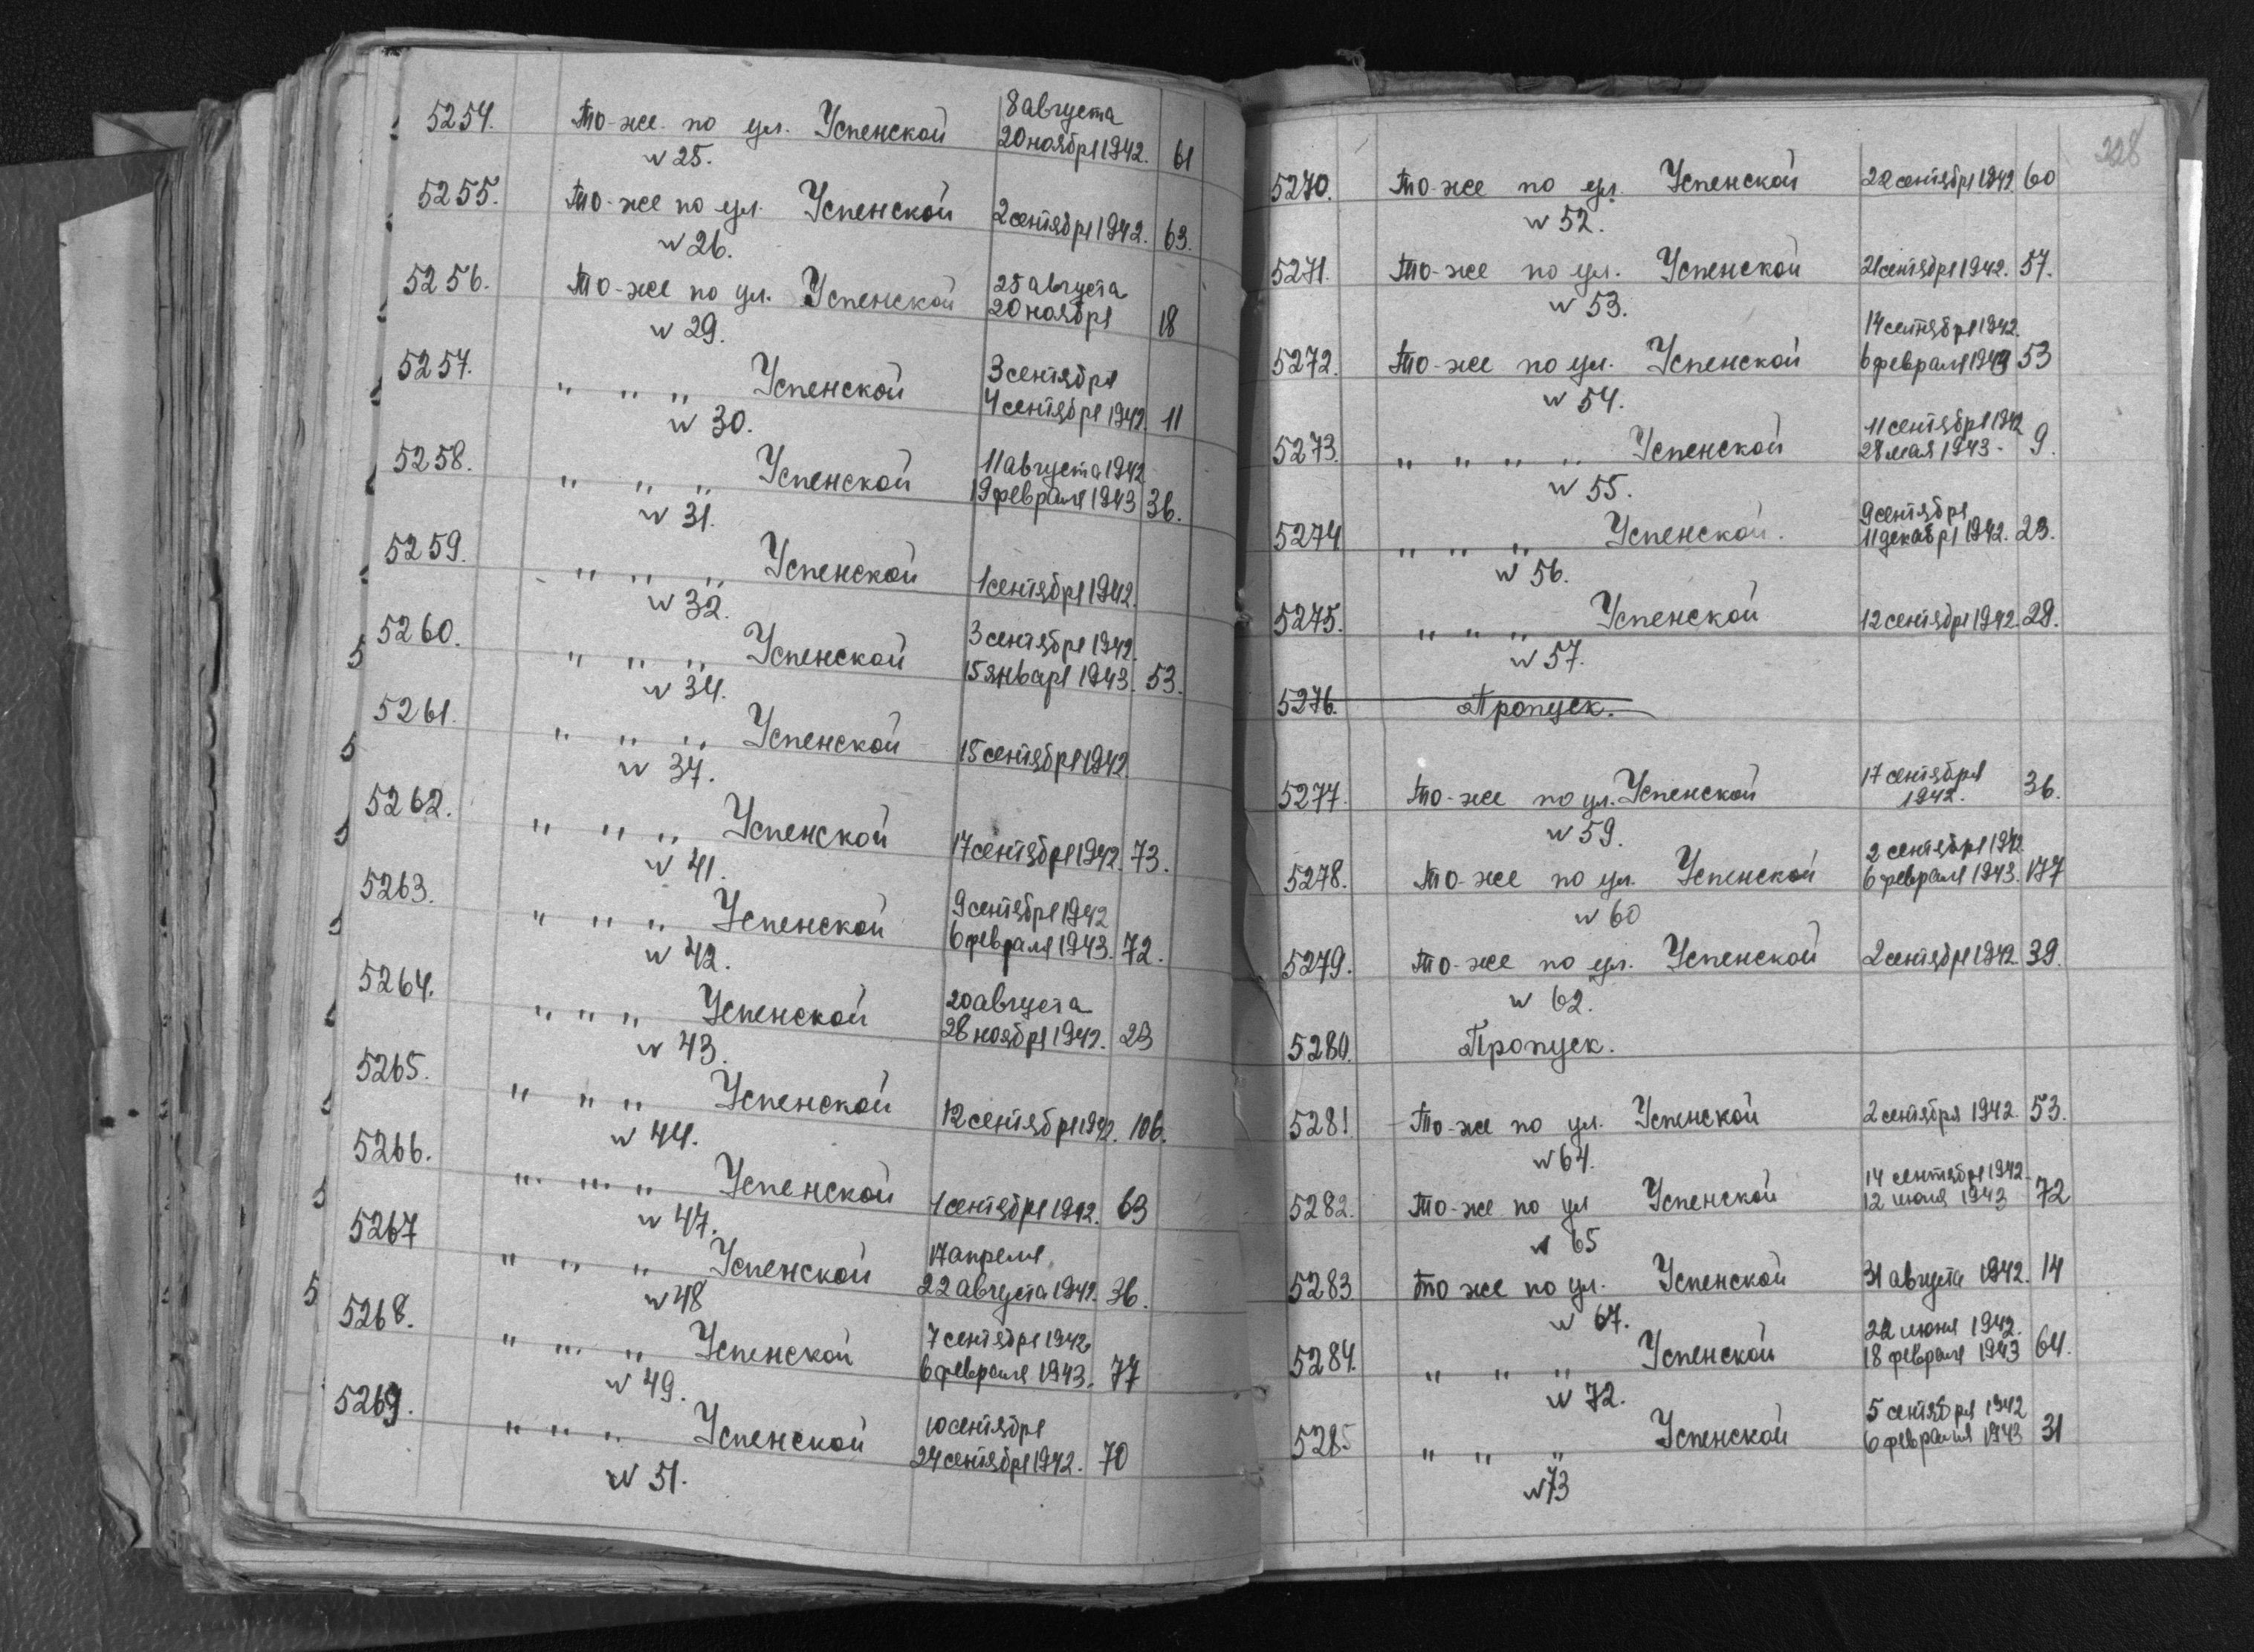 5254. То-же по ул. Успенской 8 августа
20 ноября 1942. 61
№ 25.
5255. То-же по ул. Успенской 2 сентября 1942. 63.
№ 26.
5256. То-же по ул. Успенской 25 августа
20 ноября 18
№ 29.
5257. " " " Успенской 3 сентября
4 сентября 1942. 11
№ 30.
5258. " " " Успенской 11 августа 1942
19 февраля 1943 36.
№ 31.
5259. " " " Успенской 1 сентября 1942.
№ 32.
5260. " " " Успенской 3 сентября 1942.
15 января 1943. 53.
№ 34.
5261. " " " Успенской 15 сентября 1942
№ 37.
5262. " " " Успенской 17 сентября 1942. 73.
№ 41.
5263. " " " Успенской 9 сентября 1942
6 февраля 1943. 72.
№ 42.
5264. " " " Успенской 20 августа
28 ноября 1942. 23
№ 43.
5265. " " " Успенской 12 сентября 1942. 106.
№ 44.
5266. " " " Успенской 1 сентября 1942. 63
№ 47.
5267 " " " Успенской 17 апреля
22 августа 1942. 36.
№ 48
5268. " " " Успенской 7 сентября 1942
6 февраля 1943. 77
№ 49.
5269. " " " Успенской 10 сентября
24 сентября 1942. 70
№ 51.
228
5270. То-же по ул. Успенской 22 сентября 1942 60
№ 52.
5271. То-же по ул. Успенской 21 сентября 1942. 57.
№ 53.
14 сентября 1942.
5272. То-же по ул. Успенской 6 февраля 1943 53
№ 54.
11 сентября 1942
5273. " " " " Успенской 28 мая 1943 - 9.
№ 55.
9 сентября
5274 " " " Успенской. 11 декабря 1942. 23.
№ 56.
5275. " " " Успенской 12 сентября 1942. 28.
№ 57.
5276. Пропуск.
5277. То-же по ул. Успенской 17 сентября
1942. 36.
№ 59.
2 сентября 1942
5278. То-же по ул. Успенской 6 февраля 1943. 177
№ 60
5279. То-же по ул. Успенской 2 сентября 1942 39.
№ 62.
5280. Пропуск.
5281 То-же по ул. Успенской 2 сентября 1942. 53.
№ 64.
14 сентября 1942.
5282. То-же по ул Успенской 12 июля 1943 72
№ 65
5283 То же по ул. Успенской 31 августа 1942. 14
№ 67.
22 июня 1942.
5284. " " " Успенской 18 февраля 1943 64.
№ 72.
5 сентября 1942
5285 " " " Успенской 6 февраля 1943 31
№ 73